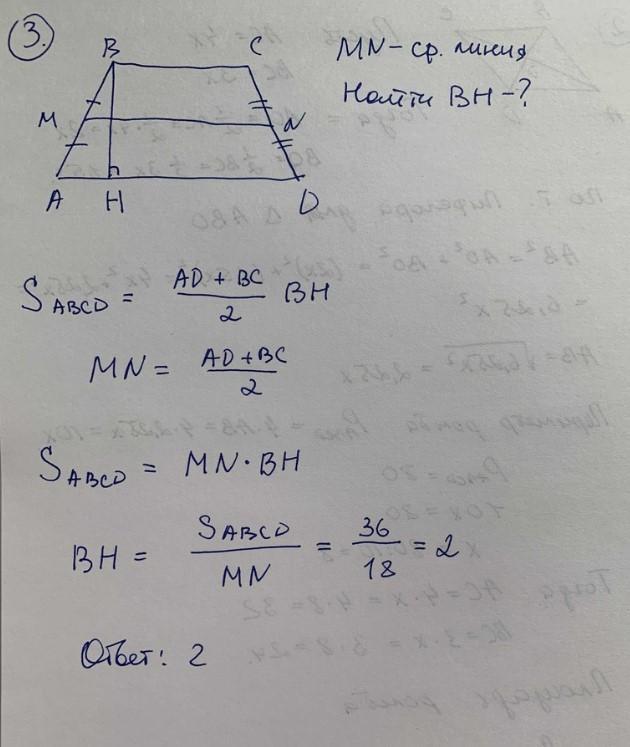 3.
B C
M N
A H D
MN - ср. линия
Найти BH - ?
S ABCD = AD + BC / 2 BH
MN = AD + BC / 2
S ABCD = MN · BH
BH = S ABCD / MN = 36 / 18 = 2
Ответ: 2